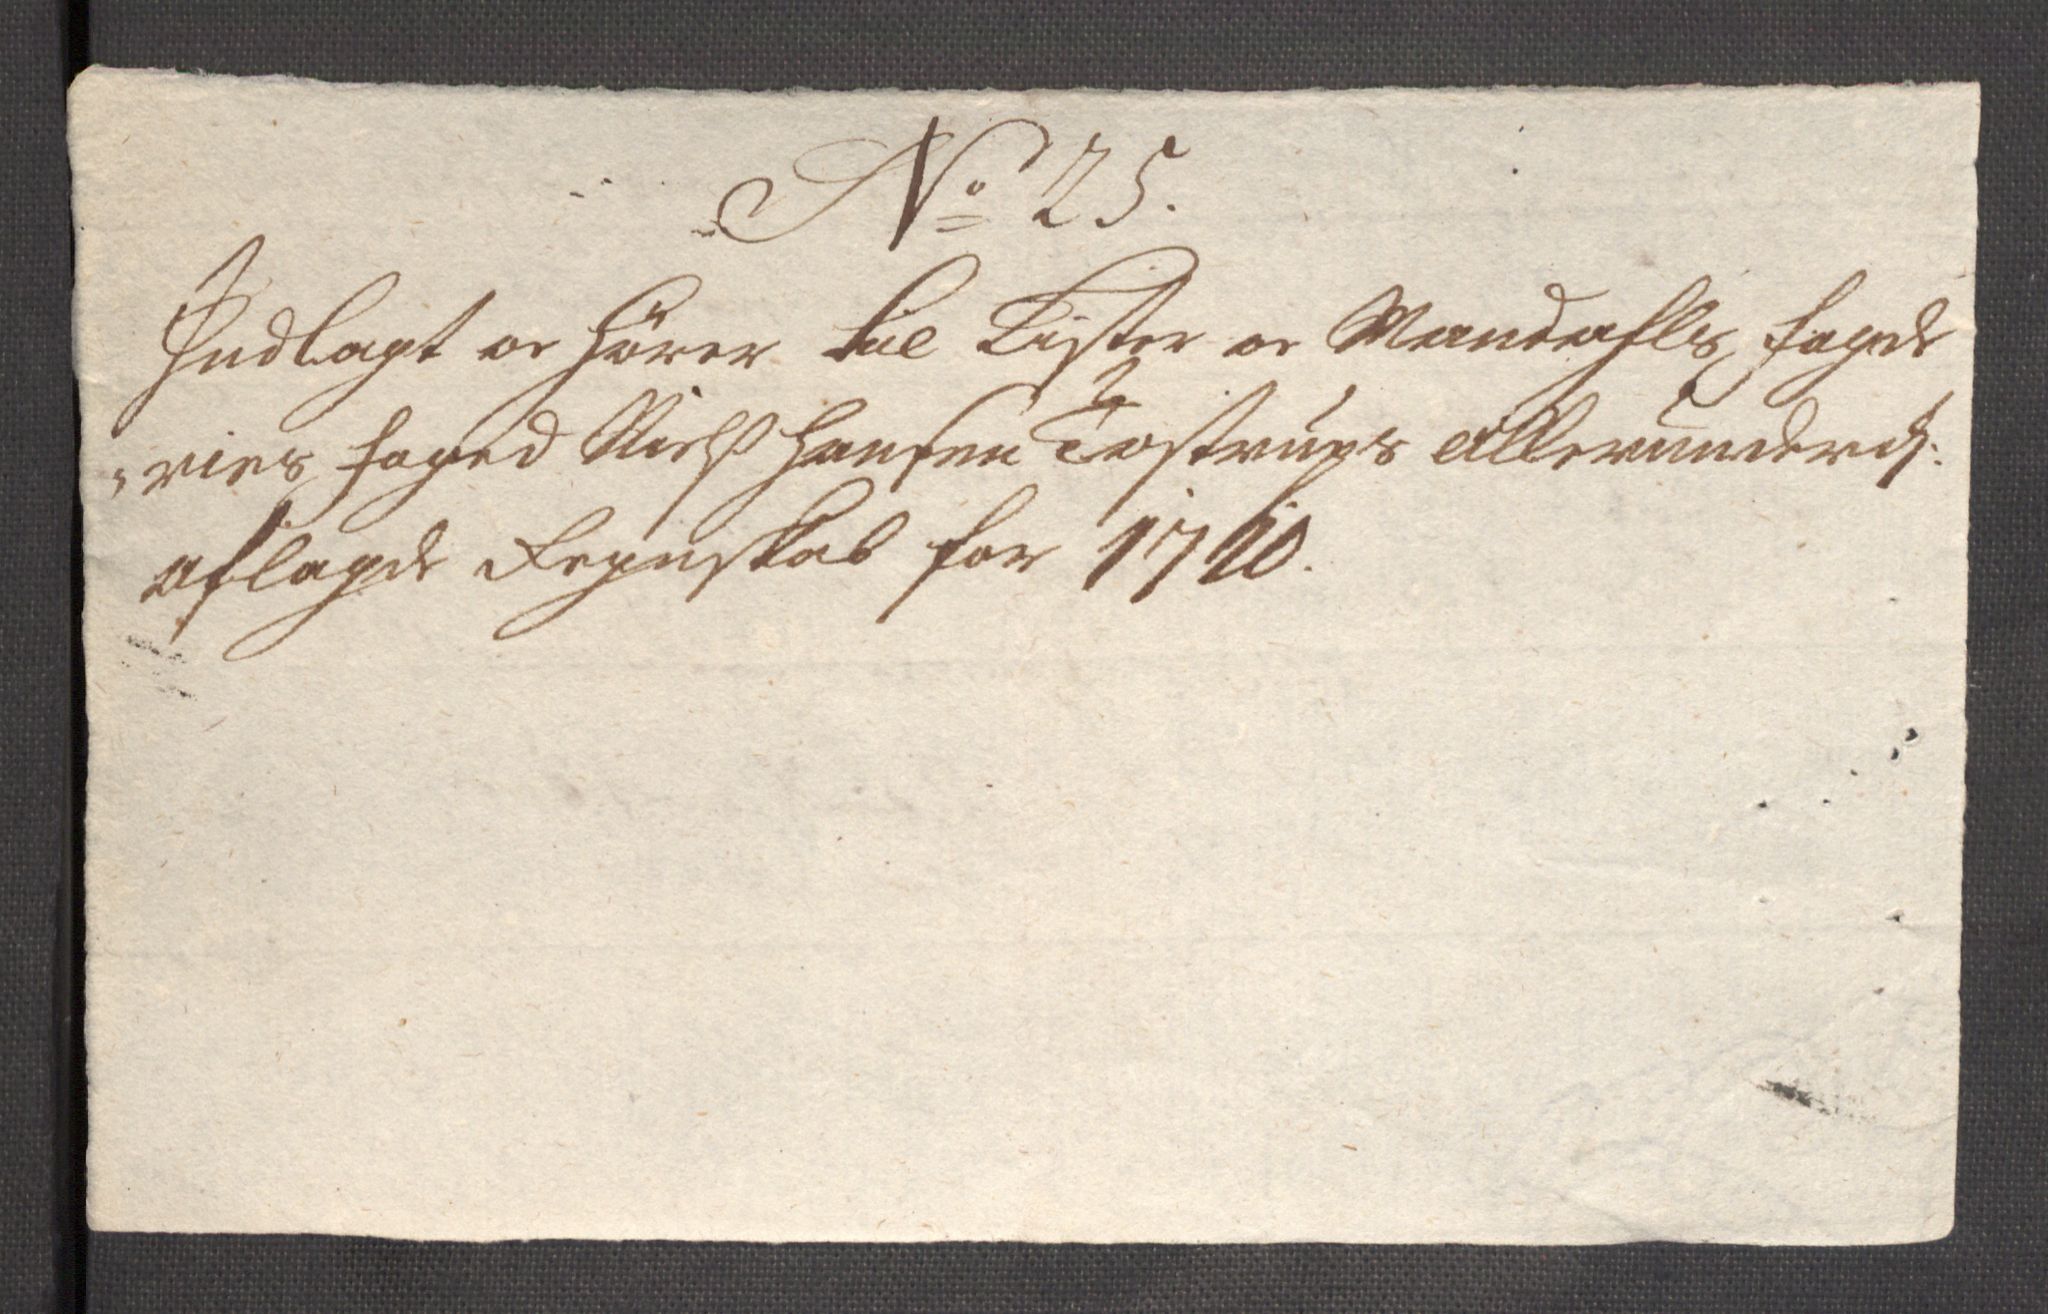 No 25.
Indlagt oc hörer til Lister oc Mandahls fogde
ries, foged Niels Hansen Tostrups allerunderd:
aflagde Regnskab for 1710.